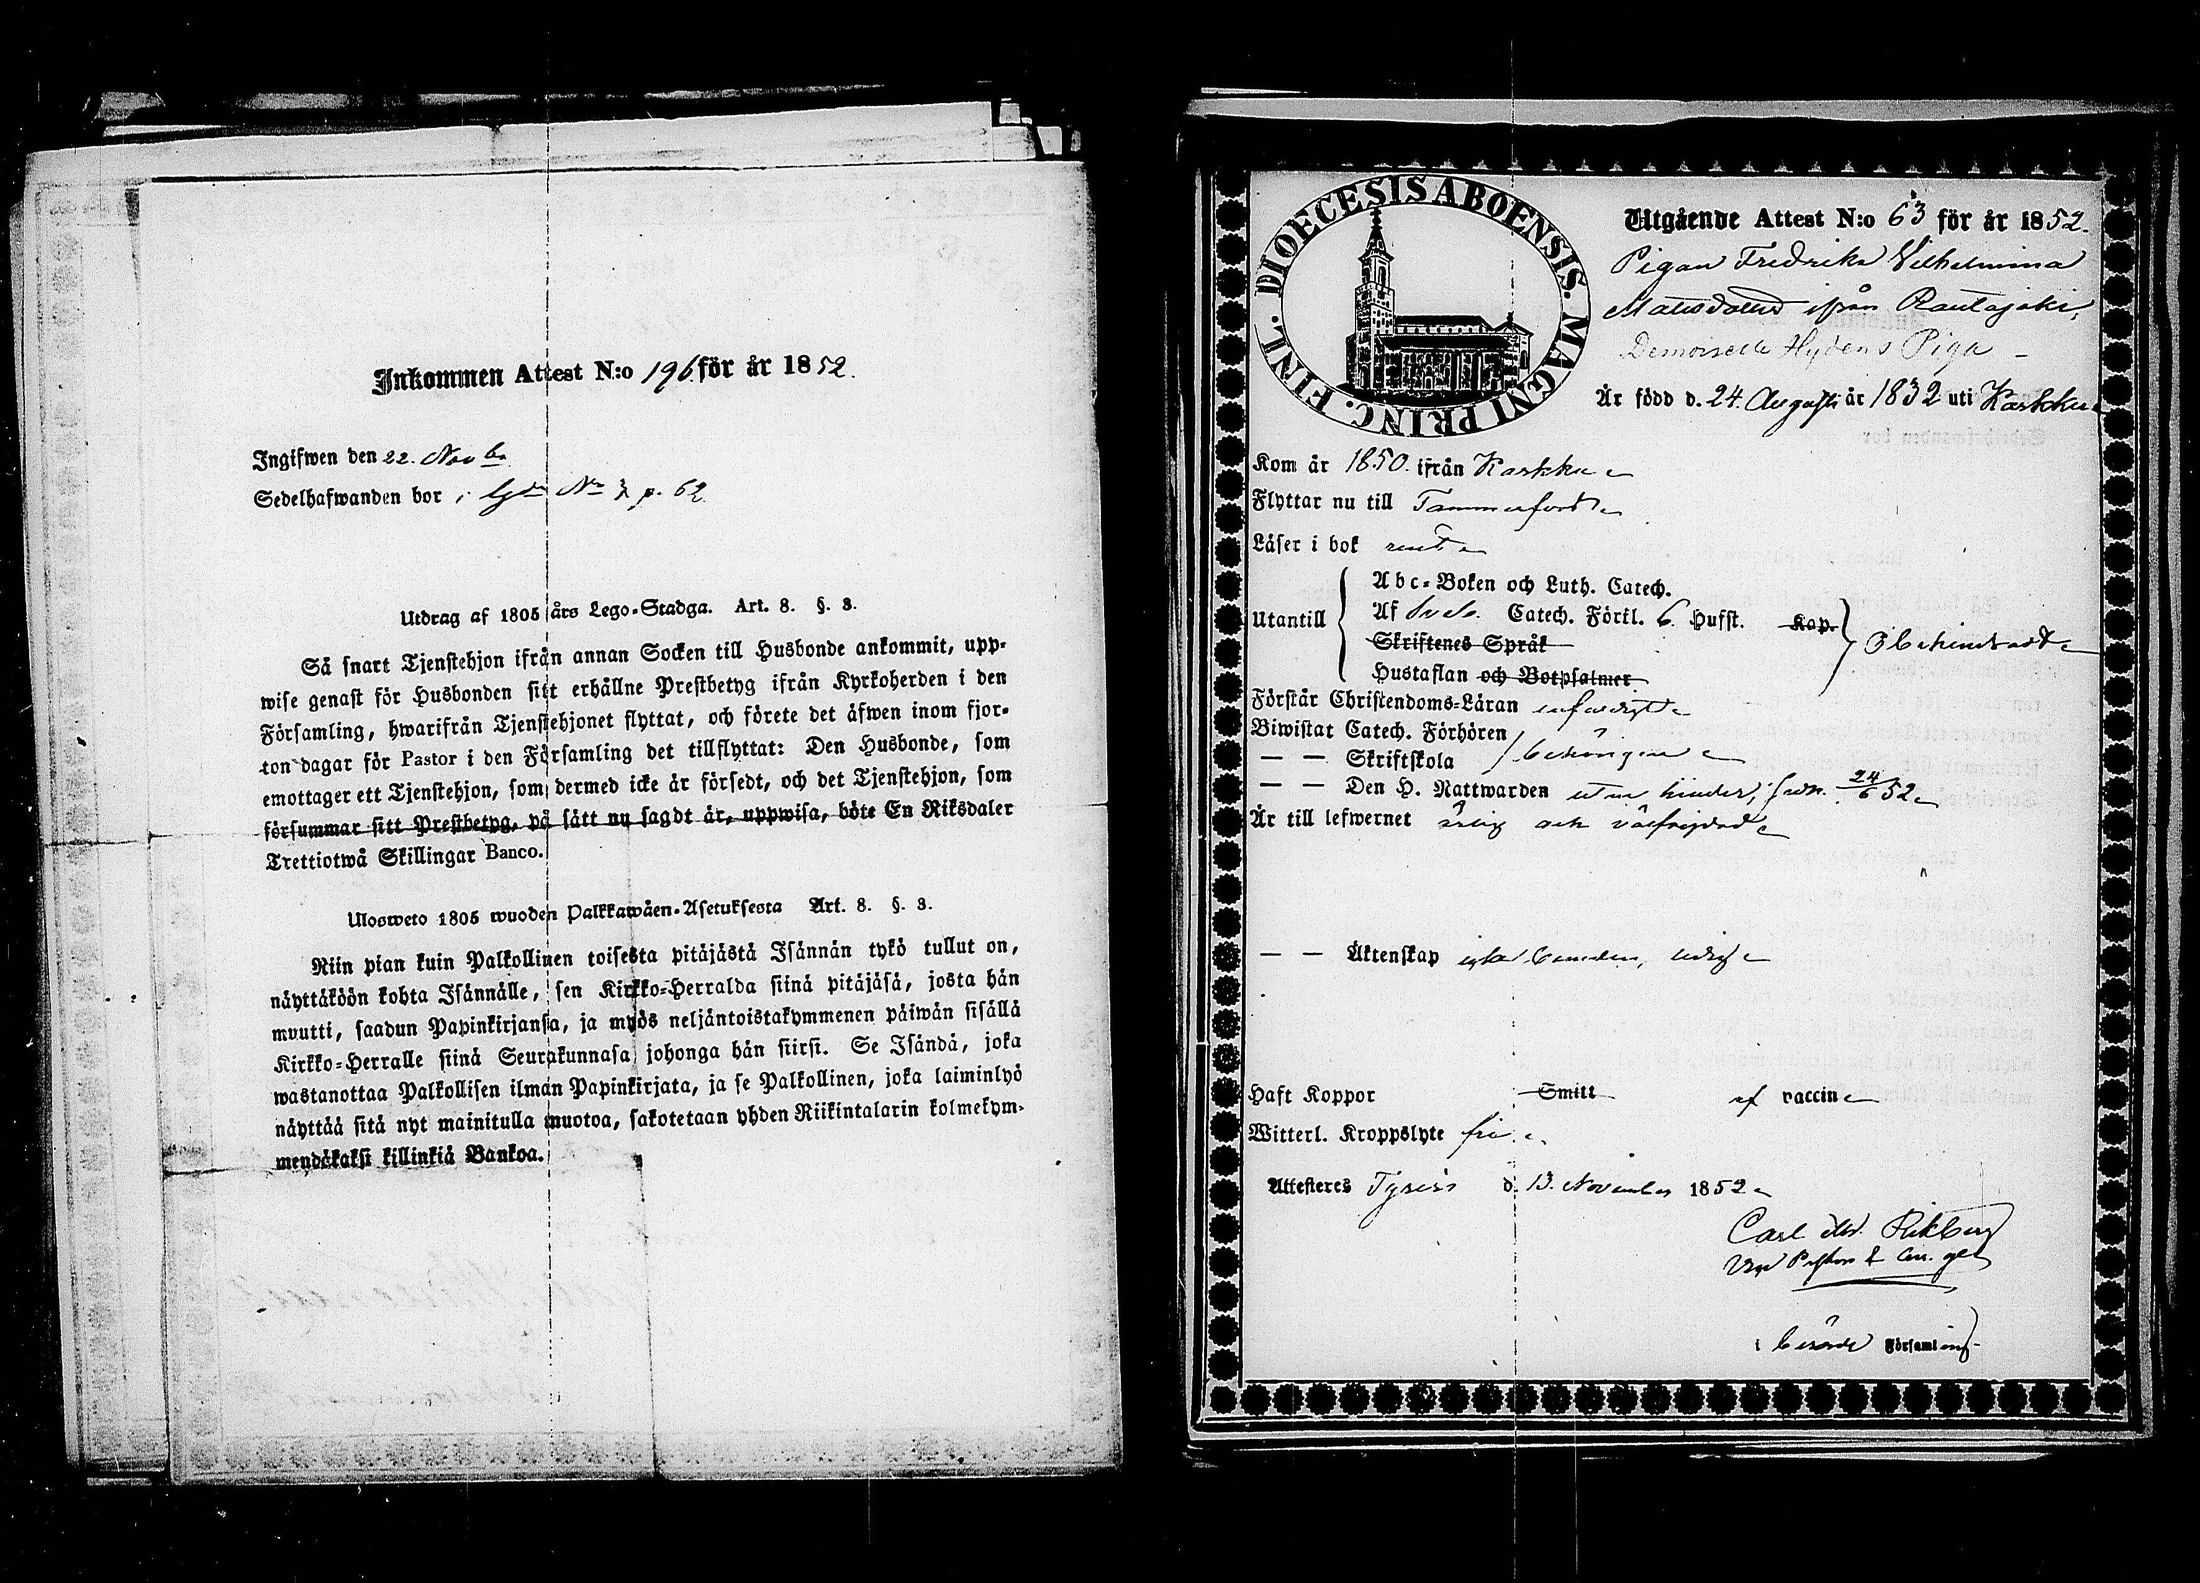 Inkommen Attest N:o 196 för år 1852.
Ingifwen den 22. Novbr
Sedelhafwanden bor i Gdn No p. 62
Utdrag af 1805 års Lego-Stadga. Art. 8. §. 3.
Så snart Tjenstehjon ifrån annan Socken till Husbonde ankommit, upp-
wise genast för Husbonden sitt erhållne Prestbetyg ifrån Kyrkoherden i den
Församling, hwarifrån Tjenstehjonet flyttat, och förete det äfwen inom fjor-
ton dagar för Pastor i den Församling det tillflyttat: Den Husbonde, som
emottager ett Tjenstehjon, som dermed icke är försedt, och det Tjenstehjon, som
försummar sitt Prestbetyg, på sätt nu sagdt är, uppwisa, böte En Riksdaler
Trettiotwå Skillingar Banco.
Ulosweto 1805 wuoden Palkkawäen-Asetuksesta Art. 8. §. 3.
Niin pian kuin Palkollinen toisesta pitäjästä Isännän tykö tullut on,
näyttäköön kohta Isännälle, sen Kirkko-Herralda siinä pitäjäsä, josta hän
muutti, saadun Papinkirjansa, ja myös neljäntoistakymmenen päiwän sisällä
Kirkko-Herralle siinä Seurakunnasa johonga hän siirsi. Se Isändä, joka
wastanottaa Palkollisen ilman Papinkirjata, ja se Palkollinen, joka laiminlyö
näyttää sitä nyt mainitulla muotoa, sakotetaan yhden Riikintalarin kolmekym-
mendäkaksi killinkiä Bankoa.
DIOECESIS ABOENSIS. MAGNI PRINC. FINL.
Utgående Attest N:o 63 för år 1852.
Pigan Fredrika Vilhelmina
Matusdotter ifrån Rautajoki,
Demoiselle Hydens Piga
Är född d. 24. Augusti år 1832 uti Karkku
Kom år 1850. ifrån Karkku
Flyttar nu till Tammerfors
Läser i bok rent
Utantill
Abc-Boken och Luth. Catech.
Af Sveb. Catech. Förkl. 6. Hufst. Kap.
Skriftenes Språk
Hustaflan och Botpsalmer
Obehindradt
Förstår Christendoms-Läran enfaldigt
Biwistat Catech. Förhören
— — Skriftskola behörigen
— — Den H. Nattwarden utan hinder, sedn. 24/6 52
Är till lefwernet ärlig och välfrejdad
— — Äktenskap ej bunden, ledig
Haft Koppor Smitt af vaccin
Witterl. Kroppslyte fri
Attesteras Tyrvis d. 13. November 1852
Carl Rikberg
Vice Pastor
i berörde Församling